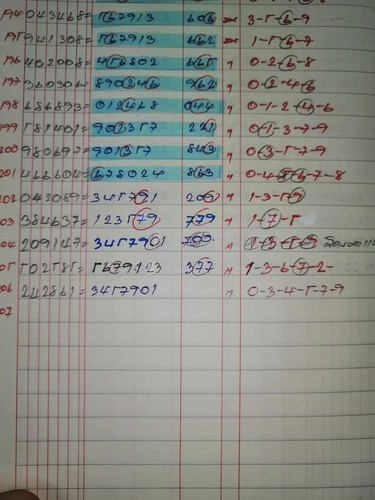 194 043468= 567913 606 3-5-6-9
195 941308= 567913 662 1-5-6-9
196 402008= 456908 665 " 0-2-6-8
197 360306= 890246 962 " 0-2-4-6
198 686893= 012468 044 " 0-1-2-4-6
199 581401= 901357 221 " 0-1-3-7-9
200 980697= 901357 843 " 0-3-5-7-9
201 466604= 678024 863 " 0-4-6-7-8
202 042089= 345791 209 " 1-3-5-9
203 384637= 123579 779 " 1-7-5
204 209147= 3457901 "
205 502585= 5679123 377 " 1-3-6-7-2-
206 242861= 3457901 " 0-3-4-5-7-9
207